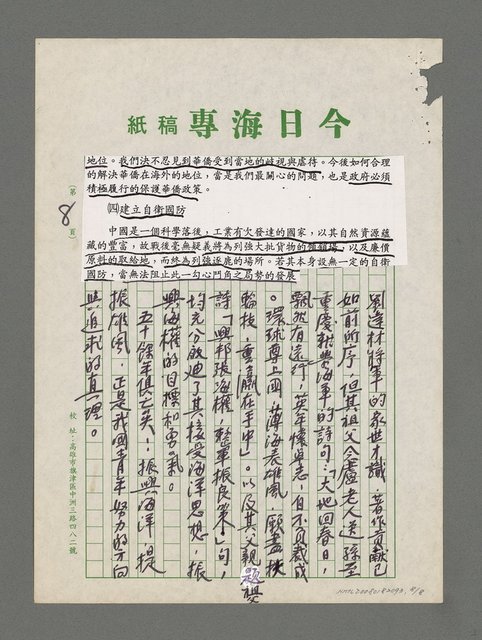 今日海專稿紙
地位。我們決不忍見到華僑受到當地的歧視與虐待。今後如何合理
的解決華僑在海外的地位，當是我們最關心的問題，也是政府必須
積極履行的保護華僑政策。
㈣建立自衛國防
中國是一個科學落後，工業有欠發達的國家，以其自然資源蘊
藏的豐富，故戰後毫無疑義將為列強大批貨物的傾銷場，以及廉價
原料的取給地，而終為列強逐鹿的場所。若其本身設無一定的自衛
國防，當無法阻止此一勾心鬥角之局勢的發展
劉達材將軍的家世才識，著作貢獻已
如前所序，但其祖父令盧老人送孫至
重慶 海軍的詩句：「大地回春日，
飄然有遠行，英年懷卓志，自不負裁成
。環球尊上國，薄海表雄風，願盡扶
輪技，重贏在手中」。以及其父親題
詩「興邦張海權，整軍振良策」句，
均充分啟迪了其接受海洋思想，振
興海權的目標和勇氣。
五十餘年俱往矣！，振興海洋，提
振雄風，正是我國青年努力的方向
與追求的真理。
（第 8 頁）
校址：高雄市旗津區中洲三路四八二號
NMTL20080182093, 8/8